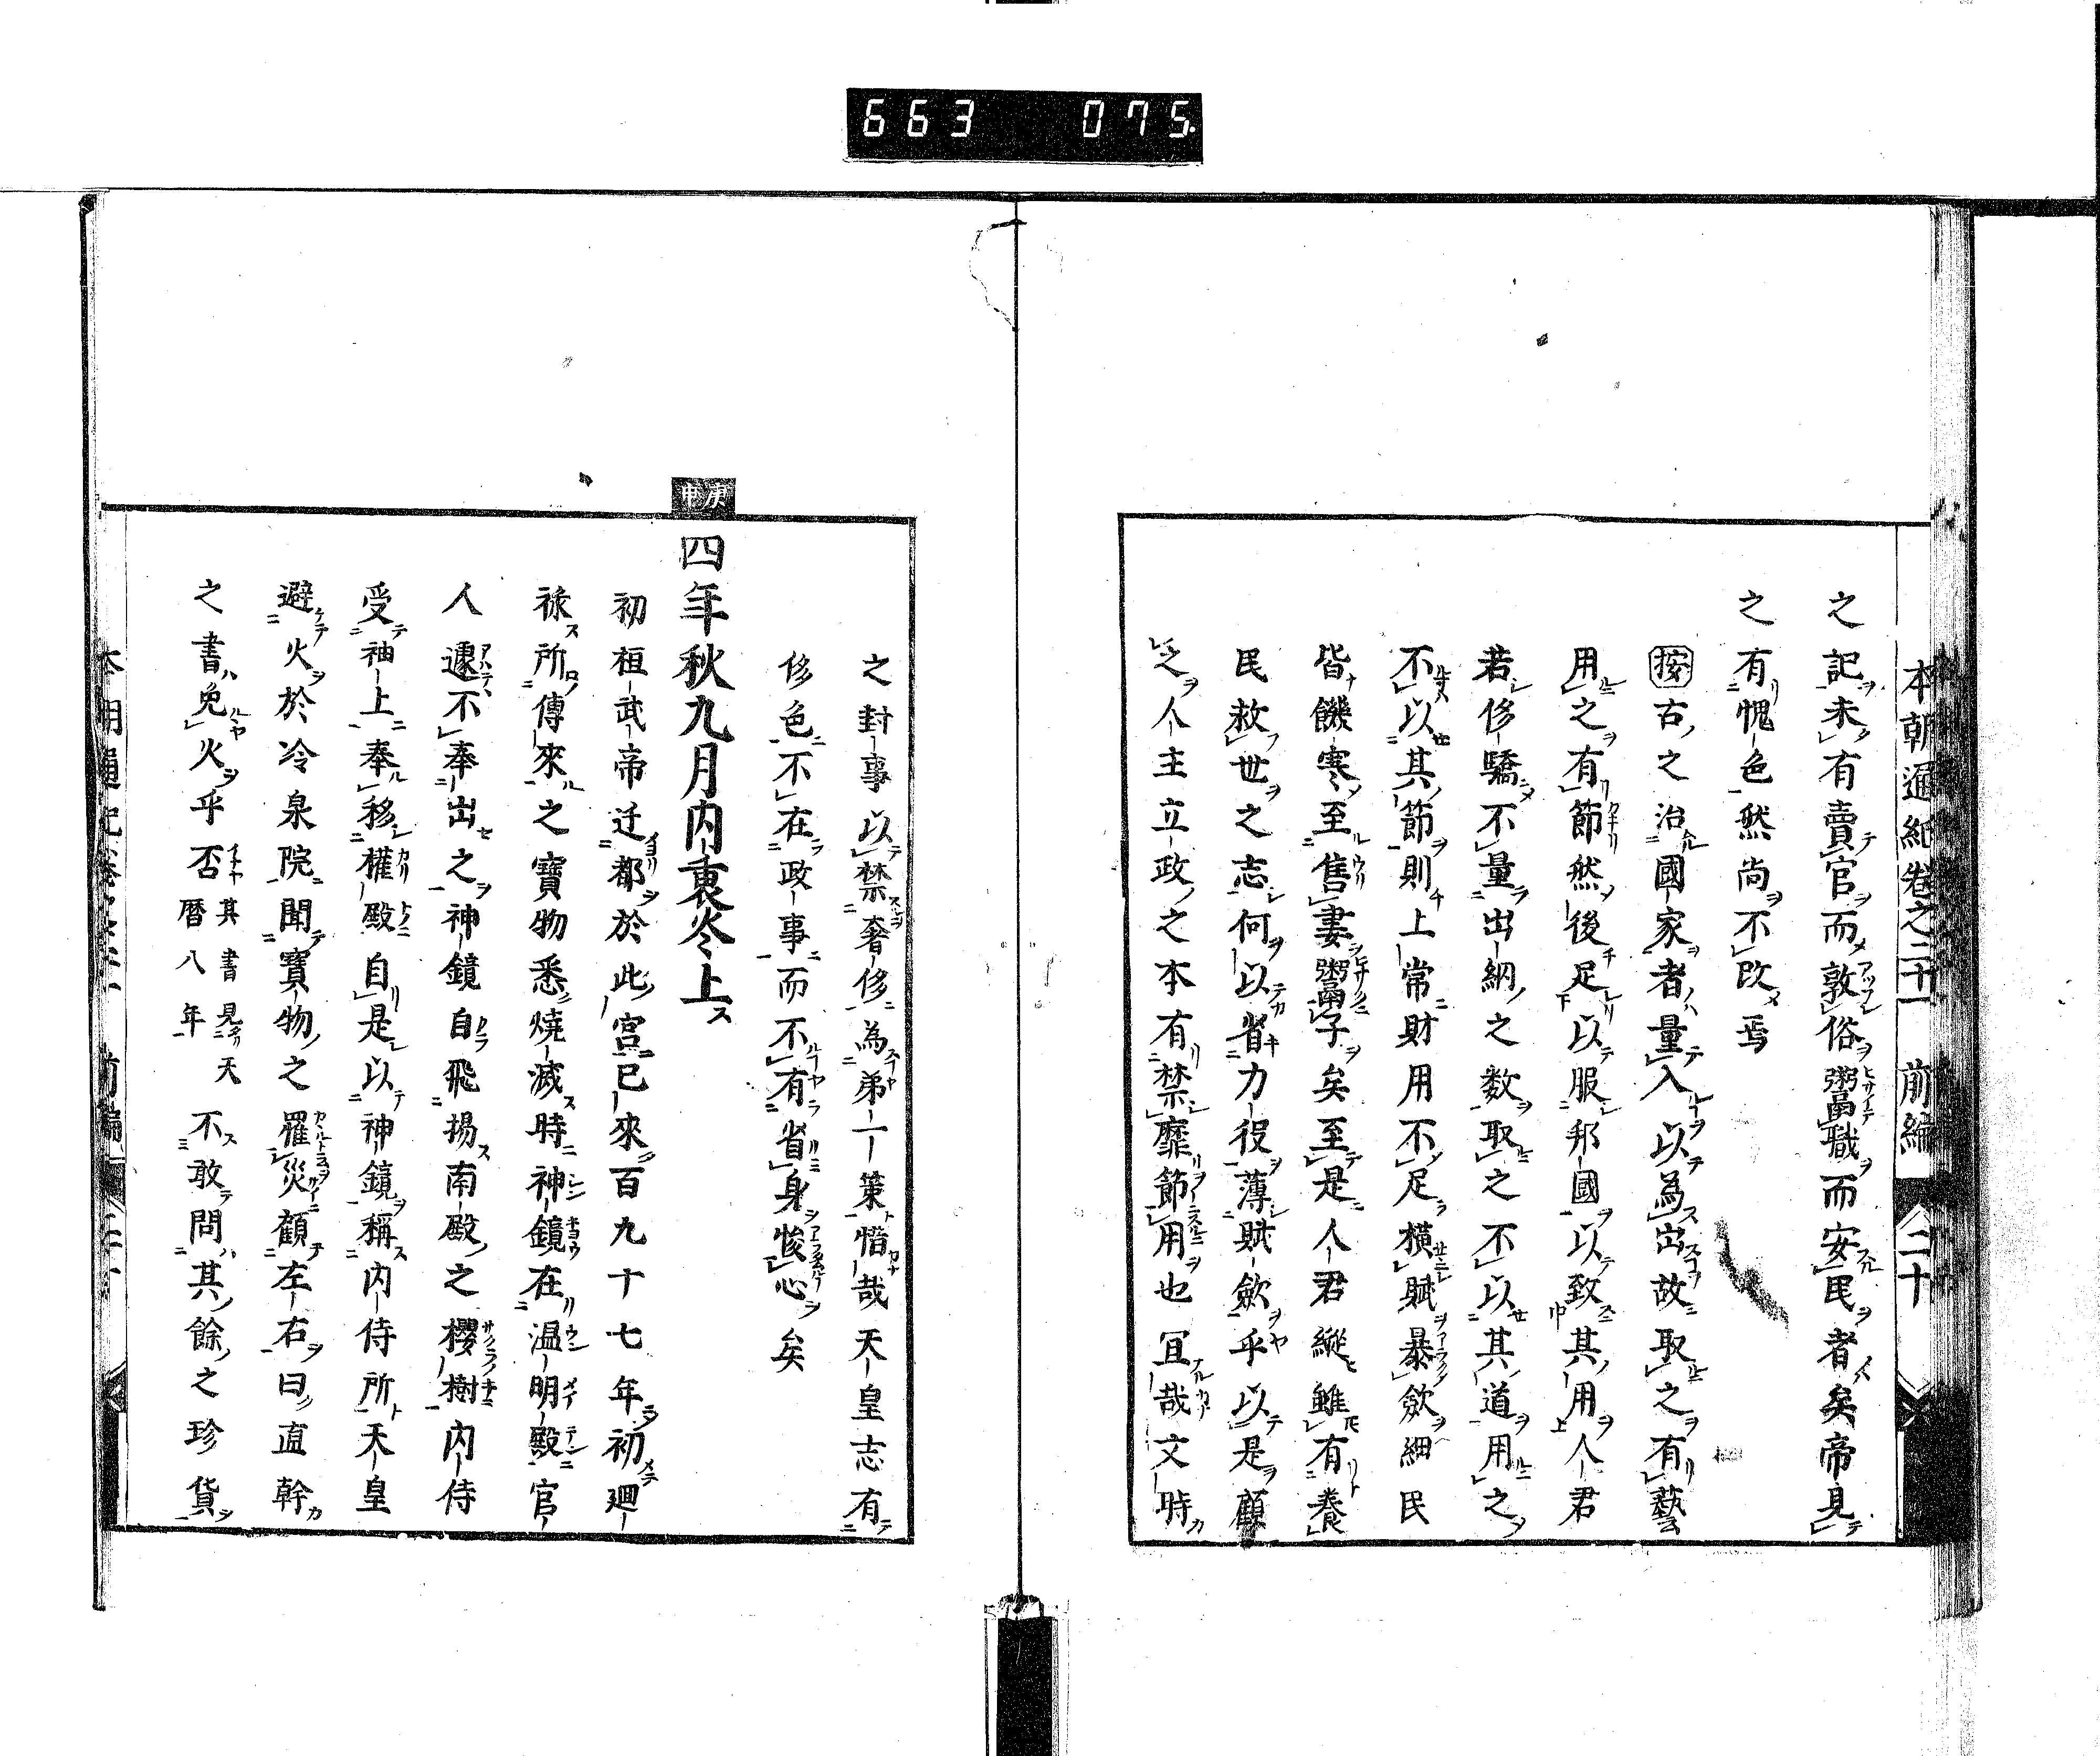 663 075
本朝通紀卷之二十一 前編 二十
之記未有賣官而敦俗鬻職而安民者矣帝見
之有愧色然尚不改焉
按古之治國家者量入以為出故取之有藝
用之有節然後足以服邦國以致其用人君
若侈驕不量出納之数取之不以其道用之
不以其節則上常財用不足橫賦暴斂細民
皆饑寒至售妻鬻子矣至是人君縱雖有養
民救世之志何以省力役薄賦斂乎以是顧
之人主立政之本有禁靡節用也冝哉文時
之封事以禁奢侈為弟一策惜哉天皇志有
侈色不在政事而不有省身悛心矣
庚申
四年秋九月内裏炎上
初祖武帝迁都於此宮已來百九十七年初廻
祿所傳來之寶物悉燒滅時神鏡在温明殿官
人遽不奉出之神鏡自飛揚南殿之櫻樹内侍
受袖上奉移權殿自是以神鏡稱内侍所天皇
避火於冷泉院聞寶物之罹災顧左右曰直幹
之書免火乎否其書見天暦八年不敢問其餘之珍貨